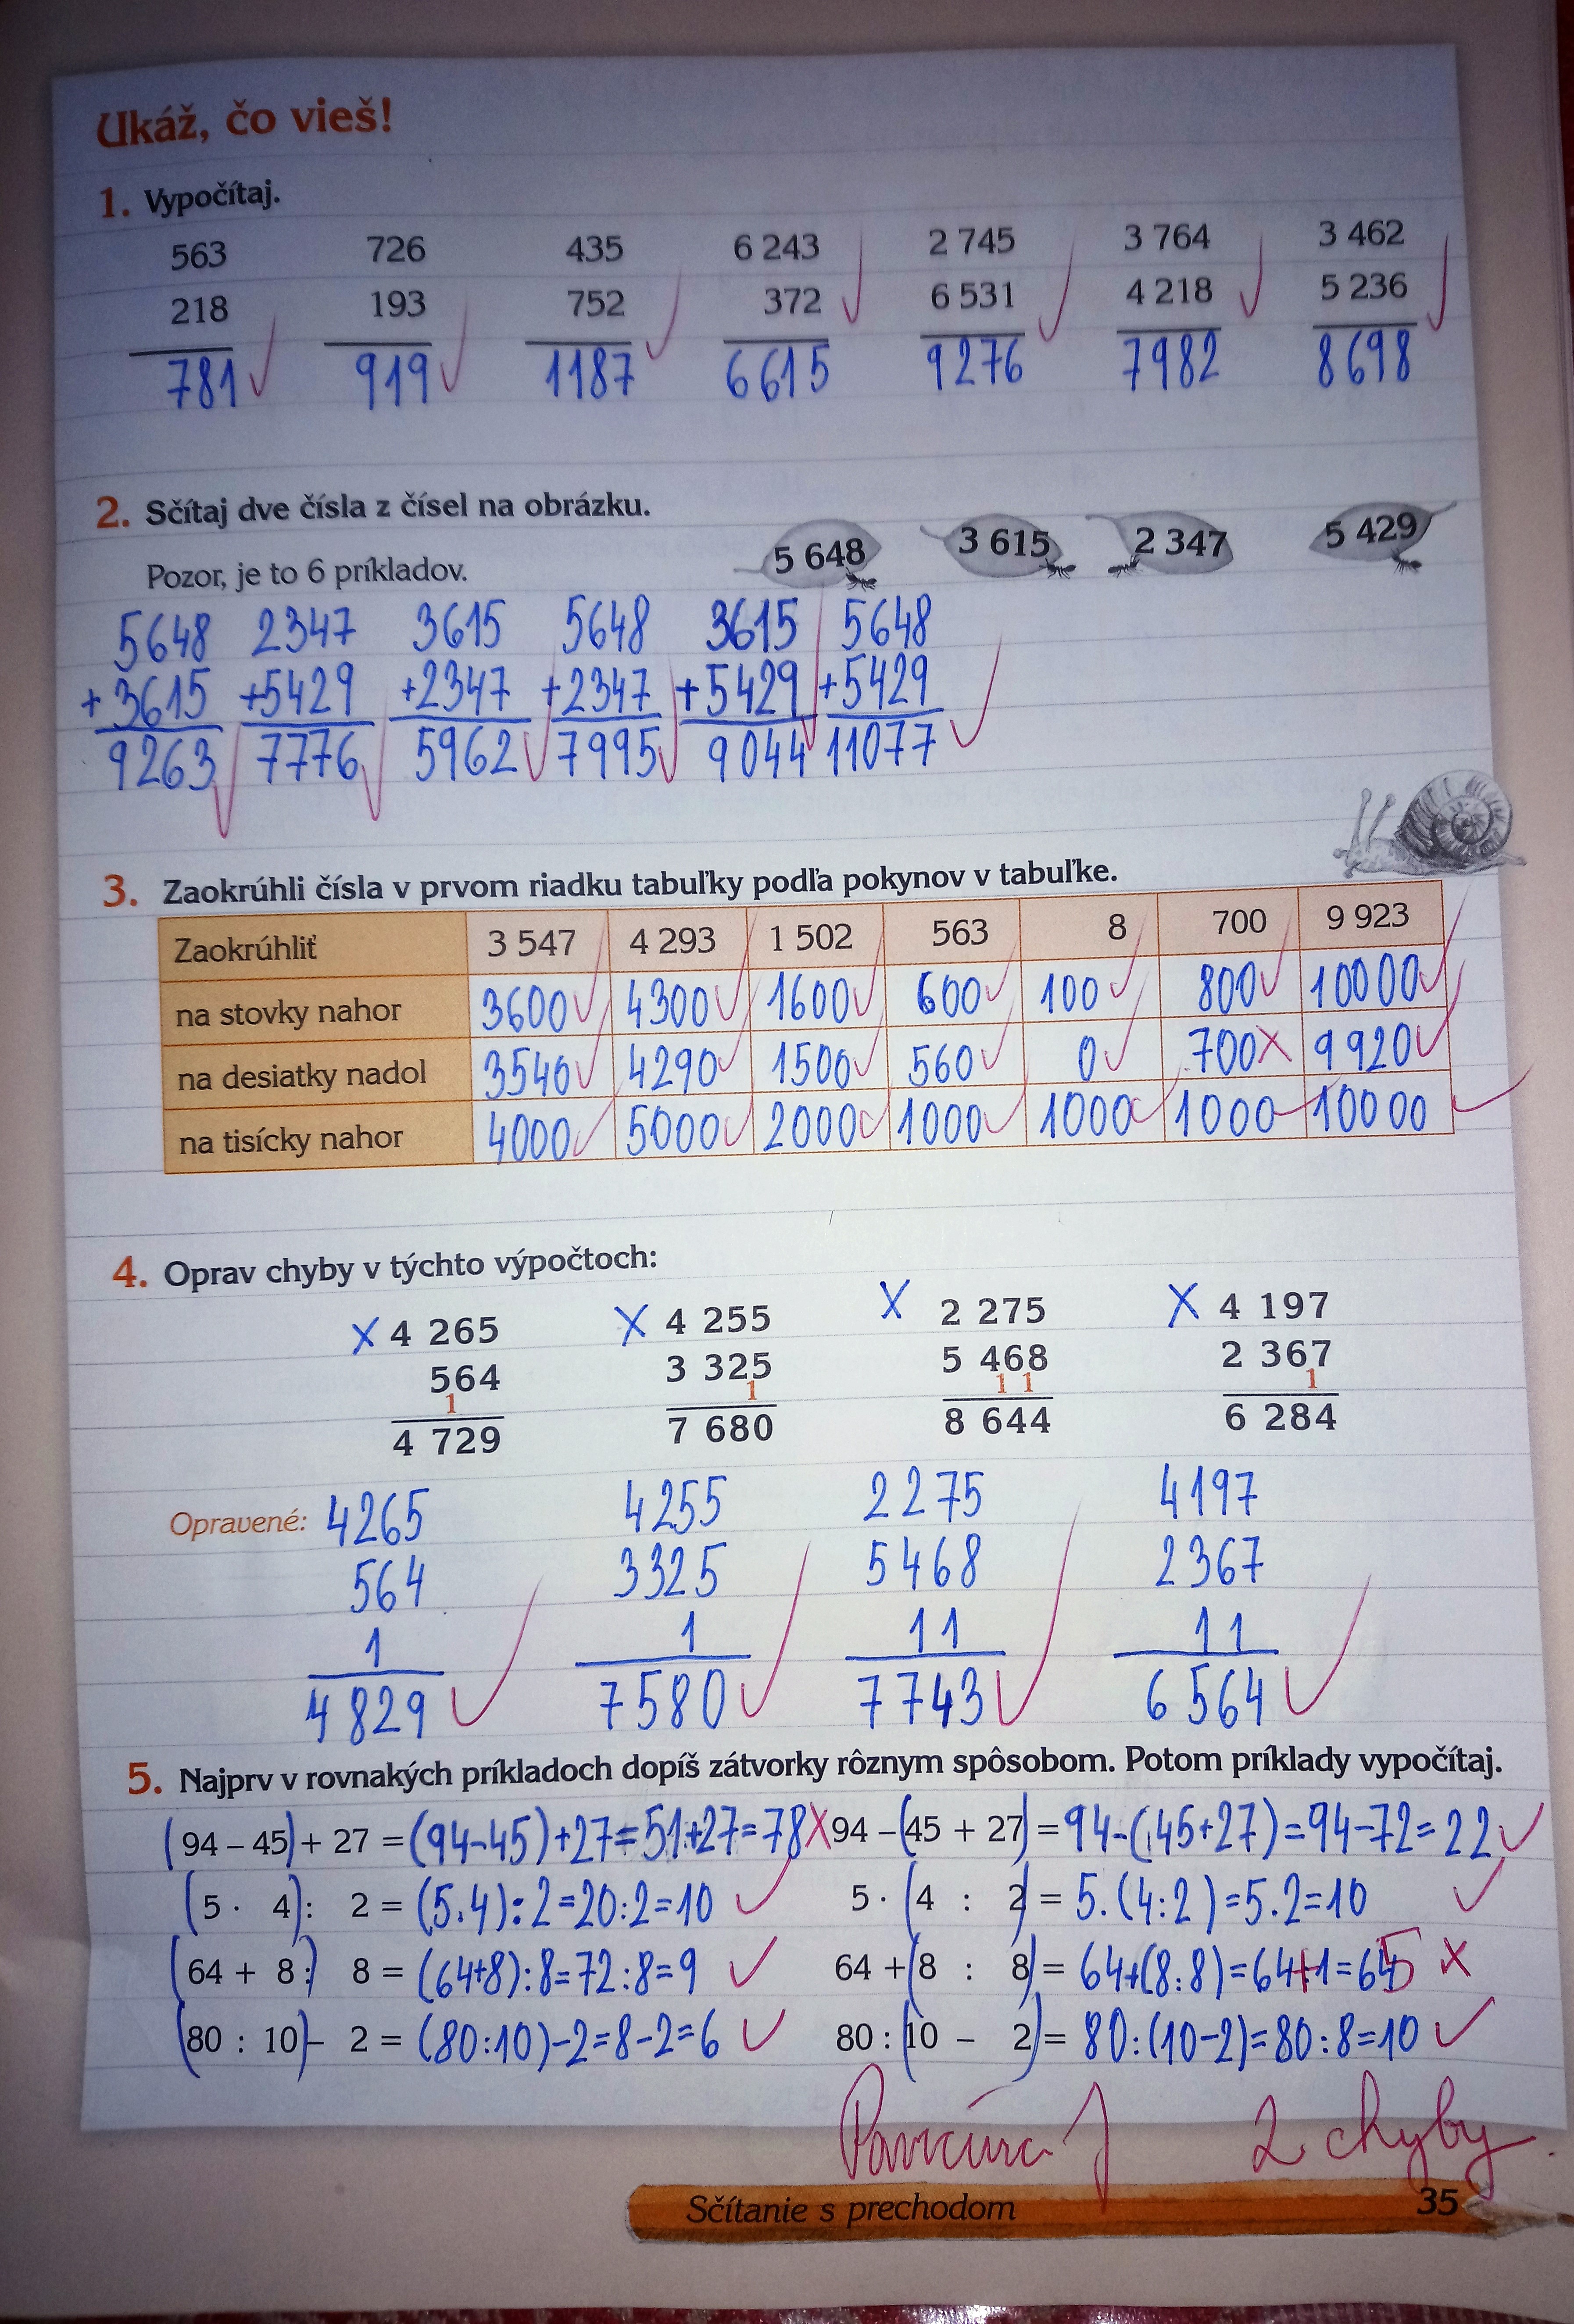 Ukáž, čo vieš!
1. Vypočítaj.
563 726 435 6 243 2 745 3 764 3 462
218 193 752 372 6 531 4 218 5 236
781 919 1187 6615 9276 7982 8698
2. Sčítaj dve čísla z čísel na obrázku.
5 648 3 615 2 347 5 429
Pozor, je to 6 príkladov.
5648 2347 3615 5648 3615 5648
+3615 +5429 +2347 +2347 +5429 +5429
9263 7776 5962 7995 9044 11077
3. Zaokrúhli čísla v prvom riadku tabuľky podľa pokynov v tabuľke.
Zaokrúhliť 3 547 4 293 1 502 563 8 700 9 923
na stovky nahor 3600 4300 1600 600 100 800 10000
na desiatky nadol 3540 4290 1500 560 0 700 9920
na tisícky nahor 4000 5000 2000 1000 1000 1000 10000
4. Oprav chyby v týchto výpočtoch:
X 4 265 X 4 255 X 2 275 X 4 197
564 3 325 5 468 2 367
1 1 1 1 1
4 729 7 680 8 644 6 284
Opravené: 4265 4255 2275 4197
564 3325 5468 2367
1 1 11 11
4829 7580 7743 6564
5. Najprv v rovnakých príkladoch dopíš zátvorky rôznym spôsobom. Potom príklady vypočítaj.
(94 – 45) + 27 = (94-45)+27=51+27=78 X 94 – (45 + 27) = 94-(45+27)=94-72=22
(5 · 4) : 2 = (5.4):2=20:2=10 5 · (4 : 2) = 5.(4:2)=5.2=10
(64 + 8) : 8 = (64+8):8=72:8=9 64 + (8 : 8) = 64+(8:8)=64+1=65 X
(80 : 10) – 2 = (80:10)-2=8-2=6 80 : (10 – 2) = 80:(10-2)=80:8=10
2 chyby
Sčítanie s prechodom 35